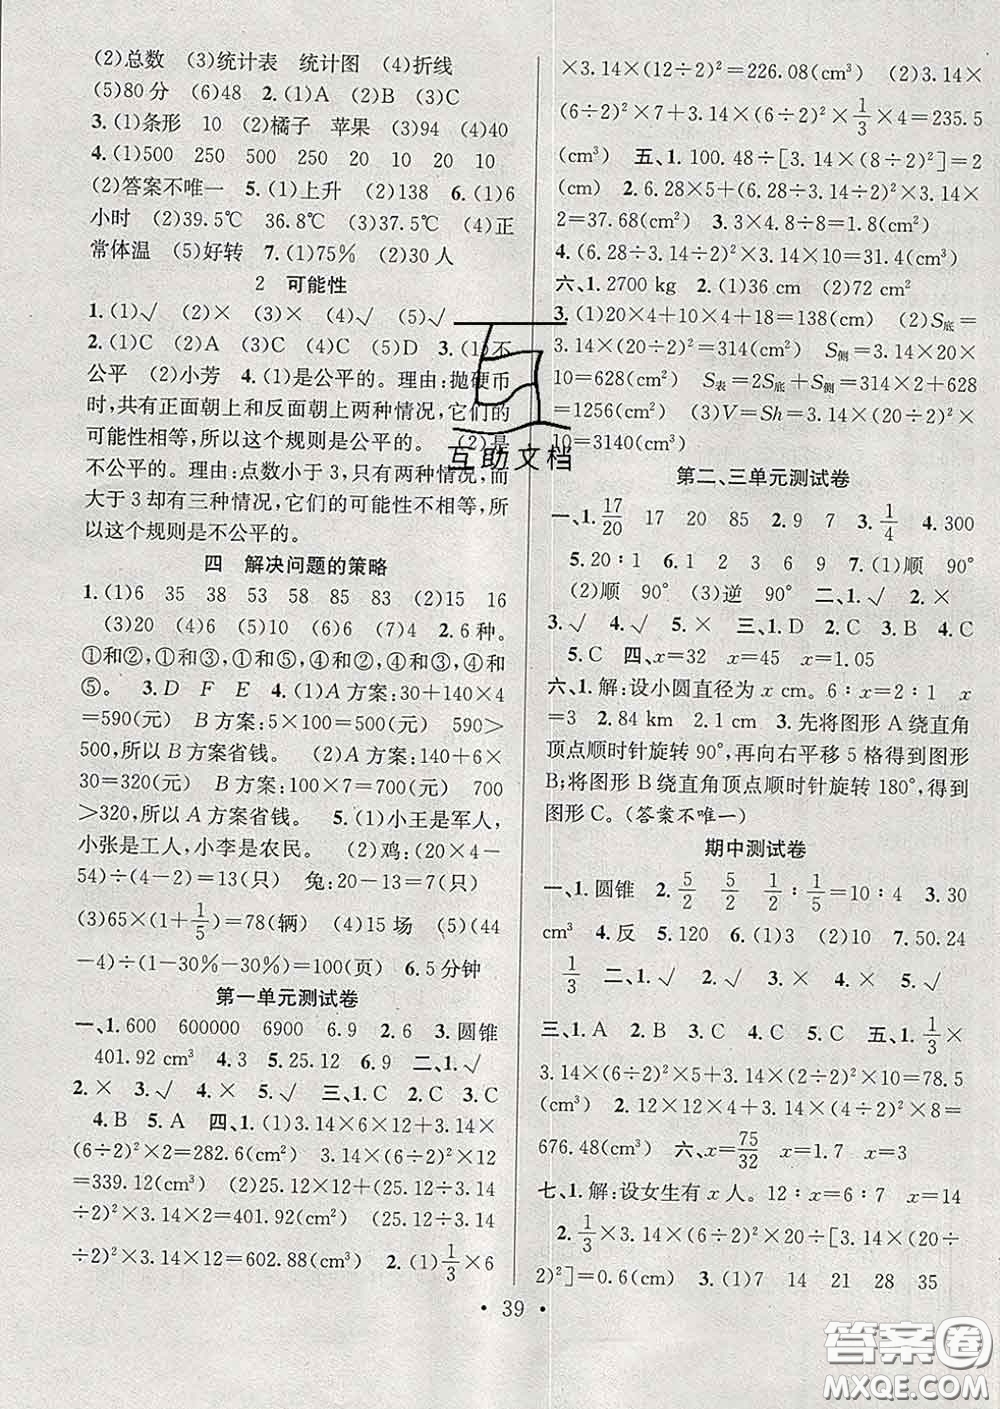 (2)总数 (3)统计表 统计图 (4)折线
(5)80分 (6)48 2.(1)A (2)B (3)C
3.(1)条形 10 (2)橘子 苹果 (3)94 (4)40
4.(1)500 250 500 250 20 10 20 10
(2)答案不唯一 5.(1)上升 (2)138 6.(1)6
小时 (2)39.5℃ 36.8℃ (3)39.2℃ (4)正
常体温 (5)好转 7.(1)75% (2)30人
2 可能性
1.(1)√ (2)× (3)× (4)√ (5)√
2.(1)C (2)A (3)C (4)C (5)D 3.(1)不
公平 (2)小芳 4.(1)是公平的。理由:抛硬币
时,共有正面朝上和反面朝上两种情况,它们的
可能性相等,所以这个规则是公平的。 (2)是
不公平的。理由:点数小于3,只有两种情况,而
大于3却有三种情况,它们的可能性不相等,所
以这个规则是不公平的。
四 解决问题的策略
1.(1)6 35 38 53 58 85 83 (2)15 16
(3)20 (4)6 (5)10 (6)6 (7)4 2.6种。
①和②,①和③,①和⑤,②和③,④和③,④和
⑤。 3.D F E 4.(1)A方案:30+140×4
=590(元) B方案:5×100=500(元) 590>
500,所以B方案省钱。 (2)A方案:140+6×
30=320(元) B方案:100×7=700(元) 700
>320,所以A方案省钱。 5.(1)小王是军人,
小张是工人,小李是农民。 (2)鸡:(20×4-
54)÷(4-2)=13(只) 兔:20-13=7(只)
(3)65×(1+1/5)=78(辆) (4)15场 (5)(44
-4)÷(1-30%-30%)=100(页) 6.5分钟
第一单元测试卷
一、1.600 600000 6900 6.9 2.6 3.圆锥
401.92 cm³ 4.3 5.25.12 6.9 二、1.√
2.× 3.√ 4.× 5.√ 三、1.C 2.C 3.C
4.B 5.A 四、1.(1)3.14×6×12+3.14×
(6÷2)²×2=282.6(cm²) 3.14×(6÷2)²×12
=339.12(cm³) (2)25.12×12+(25.12÷3.14
÷2)²×3.14×2=401.92(cm²) (25.12÷3.14
÷2)²×3.14×12=602.88(cm³) 2.(1)1/3×6
×3.14×(12÷2)²=226.08(cm³) (2)3.14×
(6÷2)²×7+3.14×(6÷2)²×1/3×4=235.5
(cm³) 五、1.100.48÷[3.14×(8÷2)²]=2
(cm) 2.6.28×5+(6.28÷3.14÷2)²×3.14
×2=37.68(cm²) 3.3×4.8÷8=1.8(cm²)
4.(6.28÷3.14÷2)²×3.14×10=31.4(cm³)
六、1.2700 kg 2.(1)36 cm (2)72 cm²
3.(1)20×4+10×4+18=138(cm) (2)S底=
3.14×(20÷2)²=314(cm²) S侧=3.14×20×
10=628(cm²) S表=2S底+S侧=314×2+628
=1256(cm²) (3)V=Sh=3.14×(20÷2)²×
10=3140(cm³)
第二、三单元测试卷
一、1.17/20 17 20 85 2.9 7 3.1/4 4.300
5.20∶1 6.1 2 3 6 9 7.(1)顺 90°
(2)顺 90° (3)逆 90° 二、1.√ 2.×
3.√ 4.√ 5.× 三、1.D 2.C 3.B 4.C
5.C 四、x=32 x=45 x=1.05
六、1.解:设小圆直径为x cm。6∶x=2∶1 x
=3 2.84 km 2.1 cm 3.先将图形A绕直角
顶点顺时针旋转90°,再向右平移5格得到图形
B;将图形B绕直角顶点顺时针旋转180°,得到
图形C。(答案不唯一)
期中测试卷
一、1.圆锥 2.5/2 5/2 1/2∶1/5=10∶4 3.30
cm³ 4.反 5.120 6.(1)3 (2)10 7.50.24
1/3 二、1.√ 2.√ 3.√ 4.× 5.√
三、1.A 2.B 3.C 4.C 5.C 五、1.1/3×
3.14×(6÷2)²×5+3.14×(6÷2)²×1/3×2=78.5
(cm³) 2.12×12×12-3.14×(4÷2)²×8=
676.48(cm³) 六、x=75/32 x=1.5 x=3
七、1.解:设女生有x人。12∶x=6∶7 x=14
2.1/3×3.14×(6÷2)²×20÷[3.14×(20÷
2)²]=0.6(cm) 3.(1)7 14 21 28 35
·39·
互助文档
答案圈
MXQE.COM